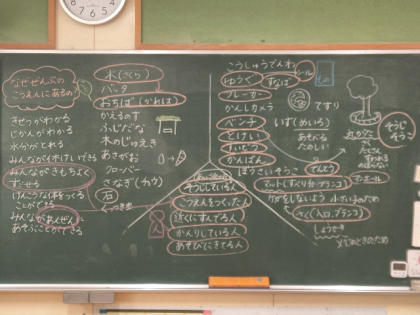 なぜぜんぶの
こうえんにあるの?
きせつがわかる
じかんがわかる
水分がとれる
みんながイオけいできる
みんながきもちよく
すごせる
けんこうな体をつくる
ことができる
みんなあんぜん
あそぶことができる
木(さくら)
バッタ
おちば(かれは)
かえるのす
ふじだな
木のじゅえき
あさがお
クローバー
さなぎ(チョウ)
石
そうじしている人
こうえんをつくった人
近くにすんでる人
かんりしている人
あそびにきてる人
こうしゅうでんわ
ゆうぐ
すなば
ブレーカー
かんしカメラ
てすり
ベンチ
いす(めいろ)
とけい
あそべる
たのしい
すいどう
かんばん
ぼうさいそうこ
でんとう
マット(すべり台・ブランコ)
マンホール
けがをしないよう
小さい子のため
さく(入口、ブランコ)
しょうかき
丸がた
たくさん
すわれる
そうじ
そうこ